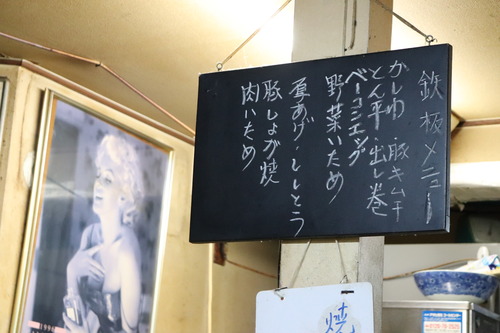 鉄板メニュー
かしゆ・豚キムチ
とん平・出し巻
ベーコンエッグ
野菜いため
厚あげ・ししとう
豚しょが焼
肉いため
焼
1994